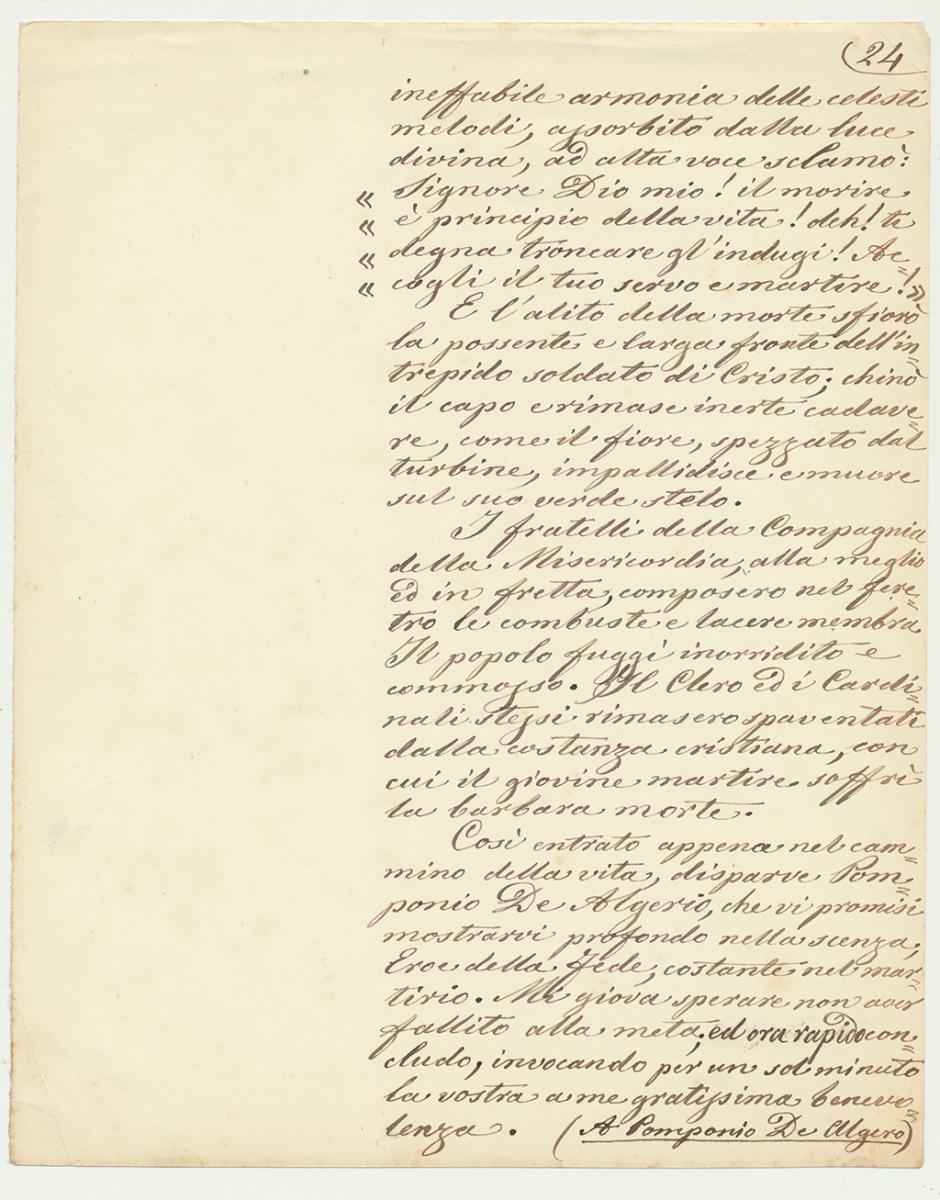 (24
ineffabile armonia delle celesti
melodi, assorbito dalla luce
divina, ad alta voce sclamò:
« Signore Dio mio! il morire
« è principio della vita! deh! ti
« degna troncare gl'indugi! Ac=
« cogli il tuo servo e martire!»
E l'alito della morte sfiorò
la possente e larga fronte dell'in=
trepido soldato di Cristo; chinò
il capo e rimase inerte cadave=
re, come il fiore, spezzato dal
turbine, impallidisce e muore
sul suo verde stelo.
I fratelli della Compagnia
della Misericordia, alla meglio
ed in fretta, composero nel fere=
tro le combuste e lacere membra.
Il popolo fuggì inorridito e
commosso. Il Clero ed i Cardi=
nali stessi rimasero spaventati
dalla costanza cristiana, con
cui il giovine martire soffrì
la barbara morte.
Così entrato appena nel cam=
mino della vita, disparve Pom=
ponio De Algerio, che vi promisi
mostrarvi profondo nella scenza,
Eroe della Fede, costante nel mar=
tirio. Mi giova sperare non aver
fallito alla meta; ed ora rapido con=
cludo, invocando per un sol minuto
la vostra a me gratissima benevo=
lenza. (A Pomponio De Algero)